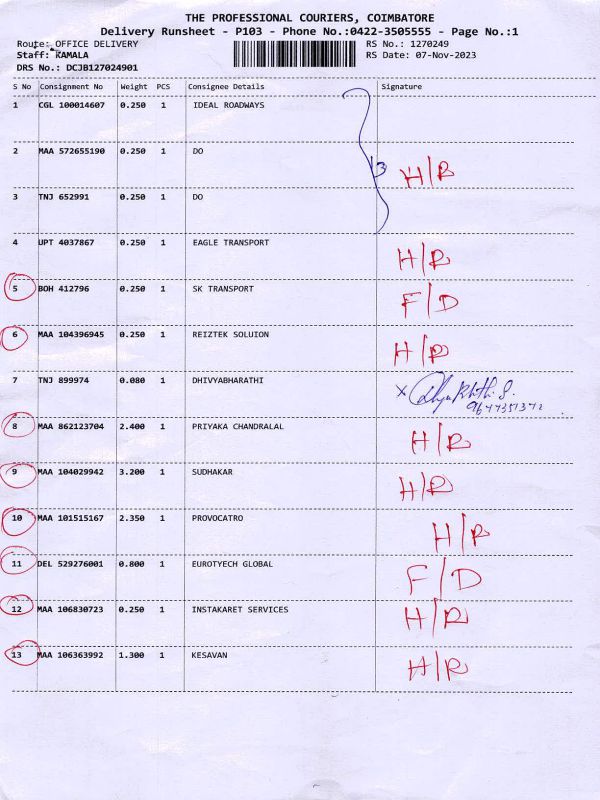 THE PROFESSIONAL COURIERS, COIMBATORE
Delivery Runsheet - P103 - Phone No.:0422-3505555 - Page No.:1
Route: OFFICE DELIVERY RS No.: 1270249
Staff: KAMALA RS Date: 07-Nov-2023
DRS No.: DCJB127024901
S No Consignment No Weight PCS Consignee Details Signature
1 CGL 100014607 0.250 1 IDEAL ROADWAYS
2 MAA 572655190 0.250 1 DO 3 H/R
3 TNJ 652991 0.250 1 DO
4 UPT 4037867 0.250 1 EAGLE TRANSPORT H/R
5 BOH 412796 0.250 1 SK TRANSPORT F/D
6 MAA 104396945 0.250 1 REIZTEK SOLUION H/R
7 TNJ 899974 0.080 1 DHIVYABHARATHI X
8 MAA 862123704 2.400 1 PRIYAKA CHANDRALAL H/R
9 MAA 104029942 3.200 1 SUDHAKAR H/R
10 MAA 101515167 2.350 1 PROVOCATRO H/R
11 DEL 529276001 0.800 1 EUROTYECH GLOBAL F/D
12 MAA 106830723 0.250 1 INSTAKARET SERVICES H/R
13 MAA 106363992 1.300 1 KESAVAN H/R